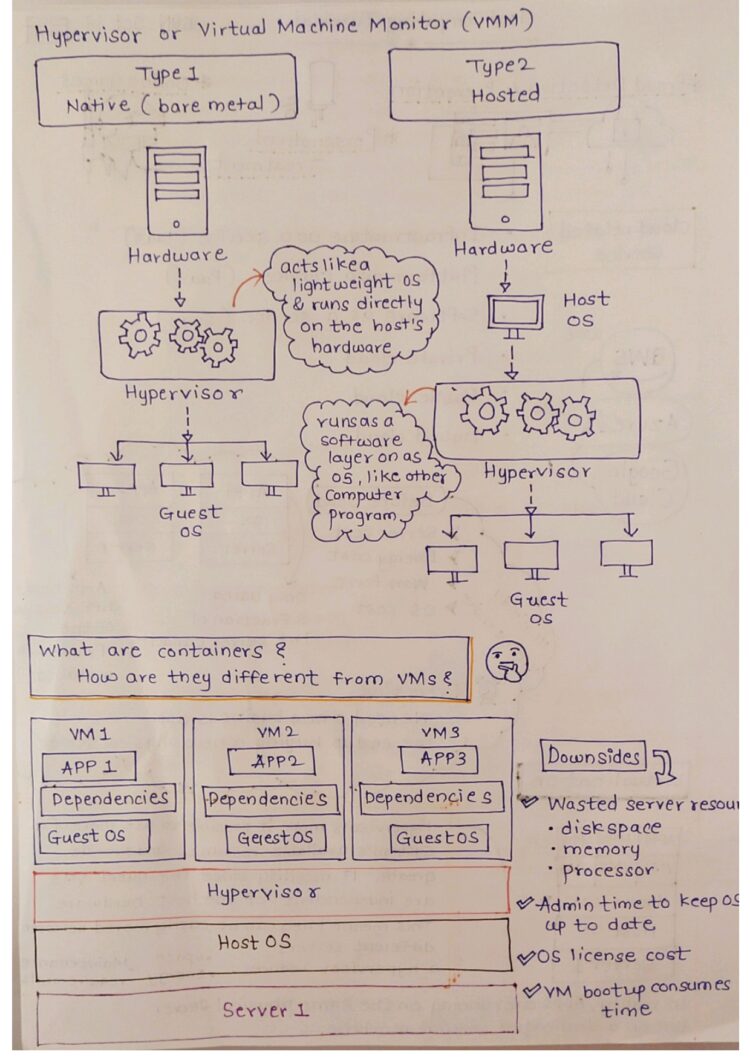 Hypervisor or Virtual Machine Monitor (VMM)
Type 1
Native (bare metal)
Type2
Hosted
Hardware
Hardware
acts like a
lightweight OS
& runs directly
on the host's
hardware
Host
OS
Hypervisor
runs as a
software
layer on as
OS, like other
Computer
program
Hypervisor
Guest
OS
Guest
OS
What are containers ?
How are they different from VMs ?
VM 1
APP 1
Dependencies
Guest OS
VM 2
APP2
Dependencies
OS
VM3
APP3
Dependencies
Guest OS
Hypervisor
Host OS
Server 1
Downsides
✓ Wasted server resour
• diskspace
• memory
• processor
✓ Admin time to keep OS
up to date
✓ OS license cost
✓ VM bootup consumes
time